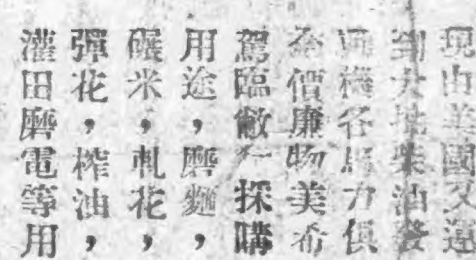 現由美國又運
到大批柴油發
動機各馬力俱
全價廉物美希
駕臨敝行採購
用途，磨麵，
碾米，軋花，
彈花，榨油，
灌田磨電等用